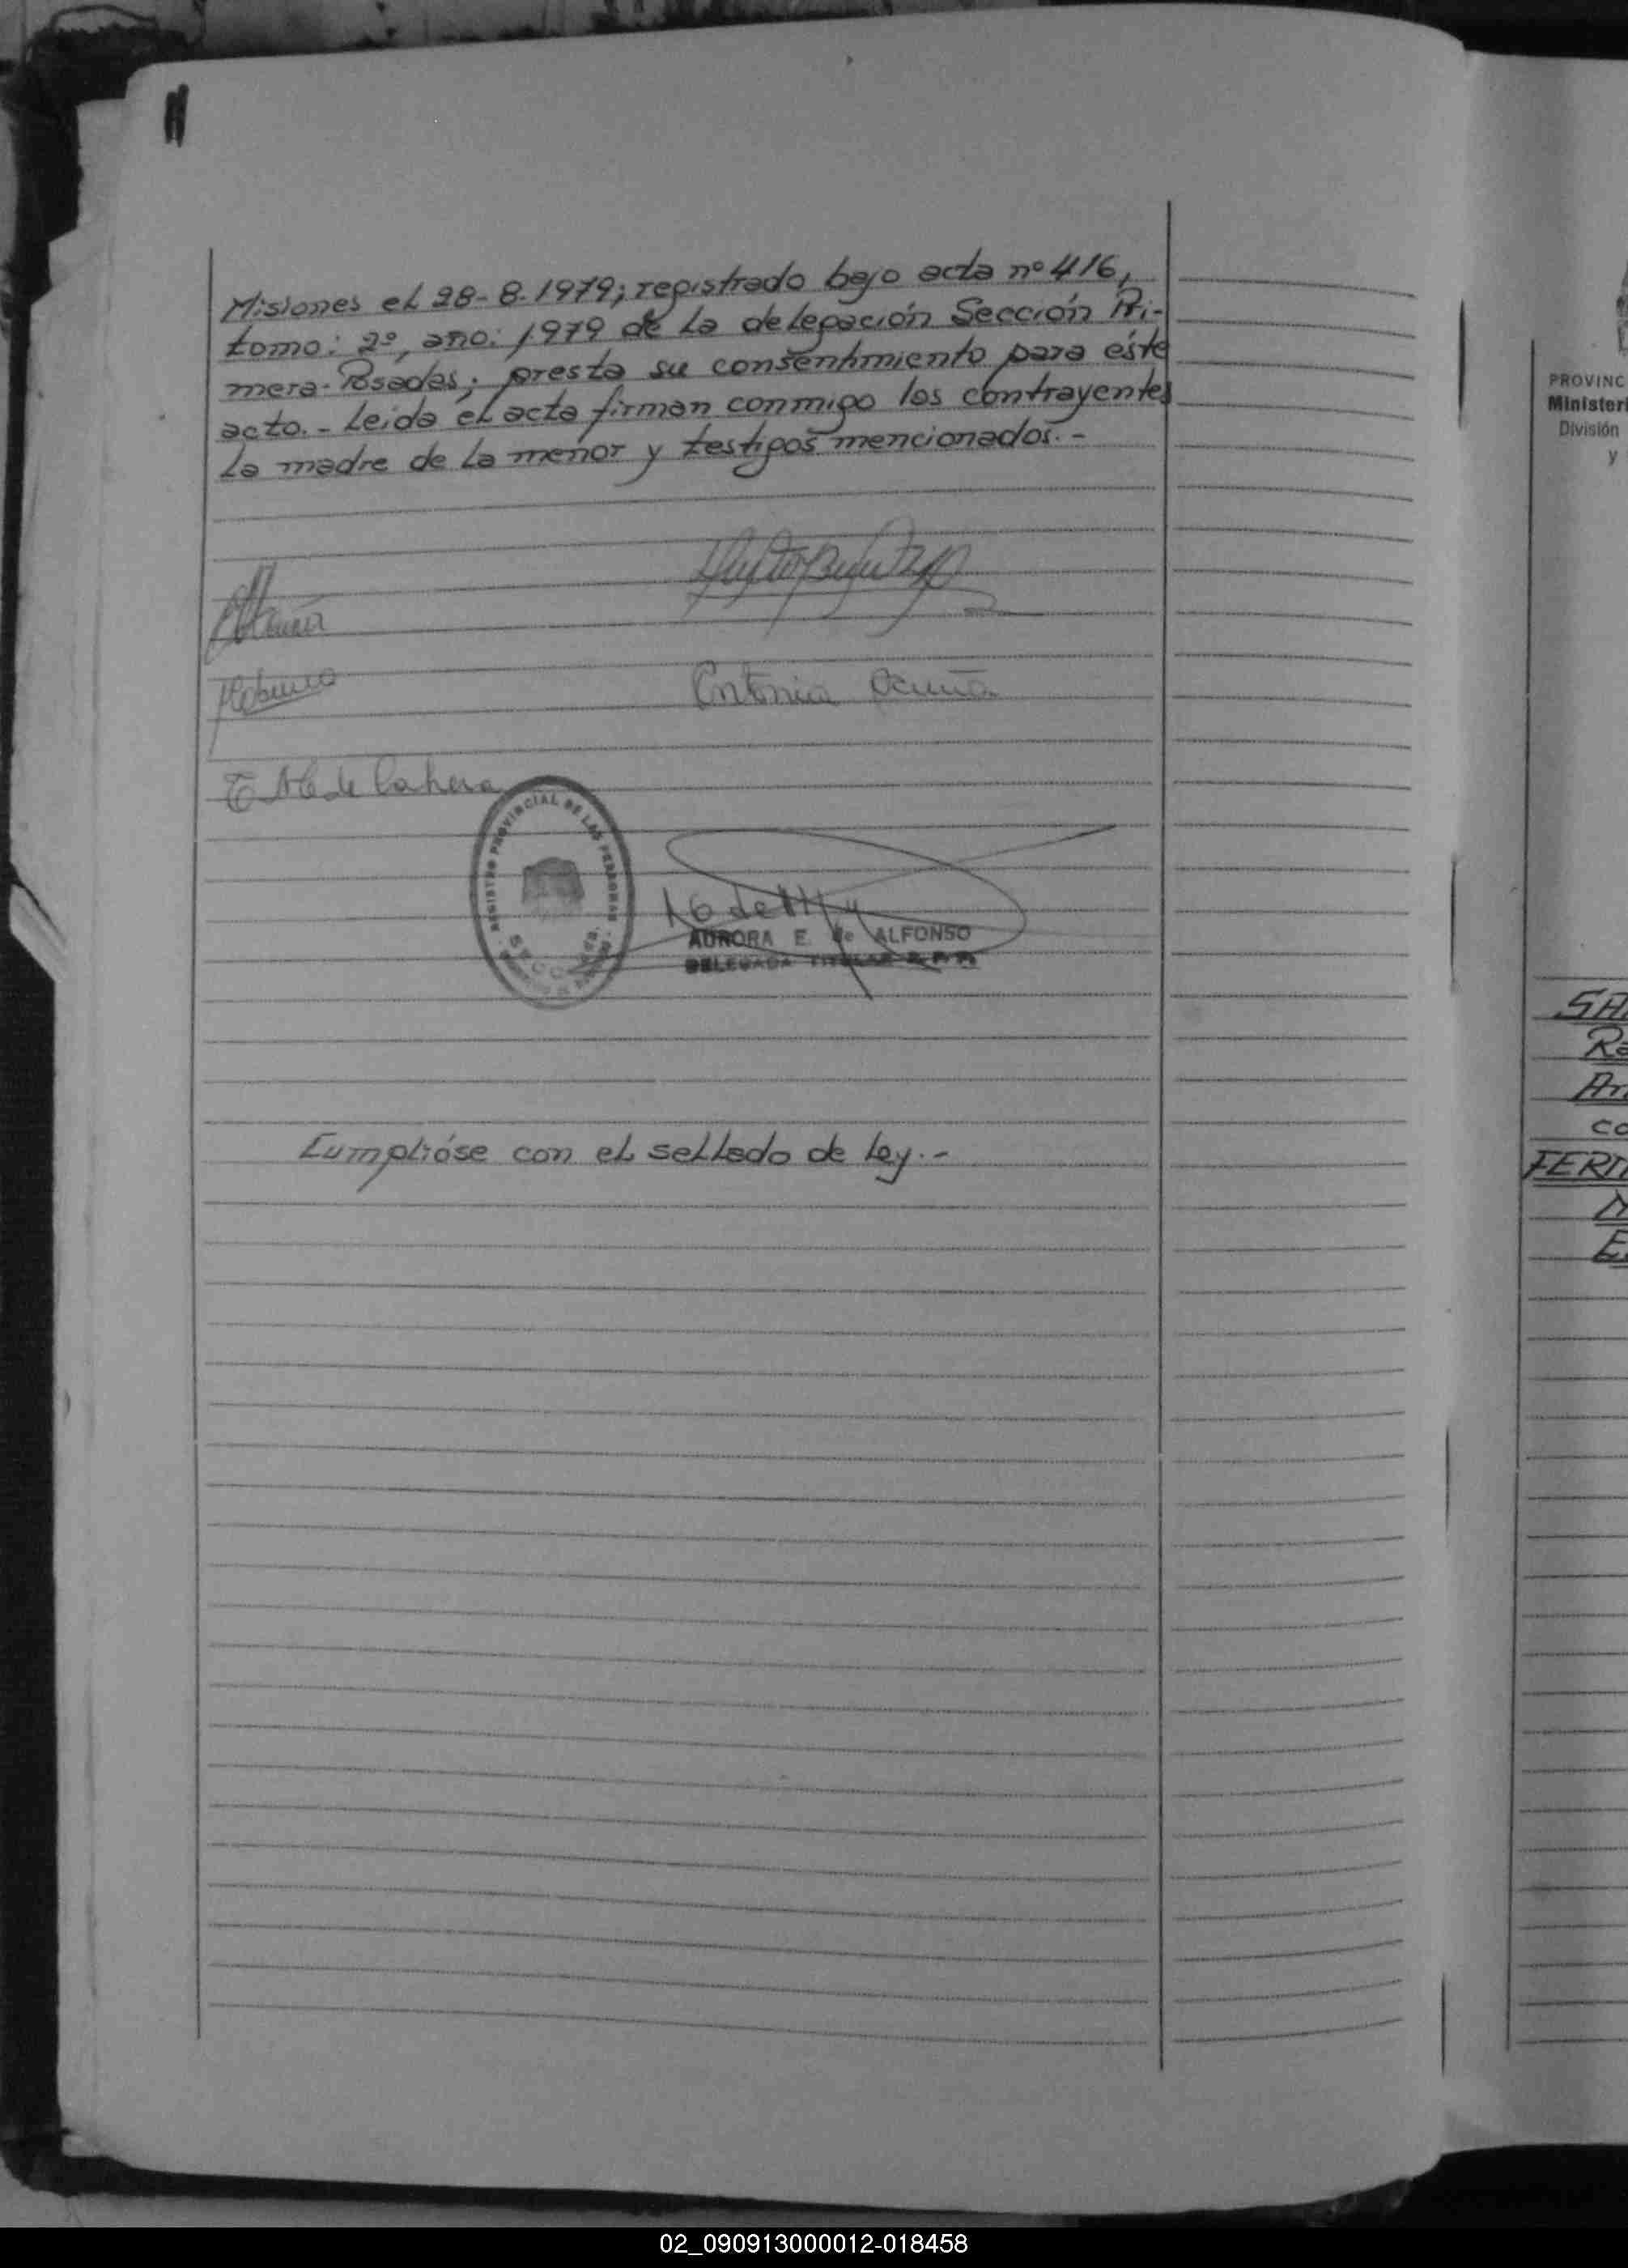 Misiones el 28-8-1979; registrado bajo acta nº 416,
tomo: 2º, año: 1979 de la delegación Sección Pri-
mera-Posadas; presta su consentimiento para éste
acto.- Leída el acta firman conmigo los contrayentes
la madre de la menor y testigos mencionados.-
Antonia Acuña
REGISTRO PROVINCIAL DE LAS PERSONAS
AURORA E. de ALFONSO
DELEGADA TITULAR R. P. P.
Cumplióse con el sellado de Ley.-
PROVINC
Ministeri
División
y
SA
Ra
An
co
FERN
M
E
02_090913000012-018458